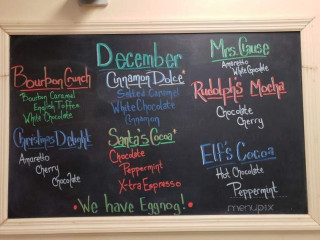 December
Bourbon Crunch
Bourbon Caramel
English Toffee
White Chocolate
Christmas Delight
Amaretto
Cherry
Chocolate
Cinnamon Dolce
Salted Caramel
White Chocolate
Cinnamon
Santa's Cocoa
Chocolate
Peppermint
X-tra Espresso
Mrs. Clause
Amaretto
White Chocolate
Rudolph's Mocha
Chocolate
Cherry
Elf's Cocoa
Hot Chocolate
Peppermint....
• We have Eggnog! •
menupix